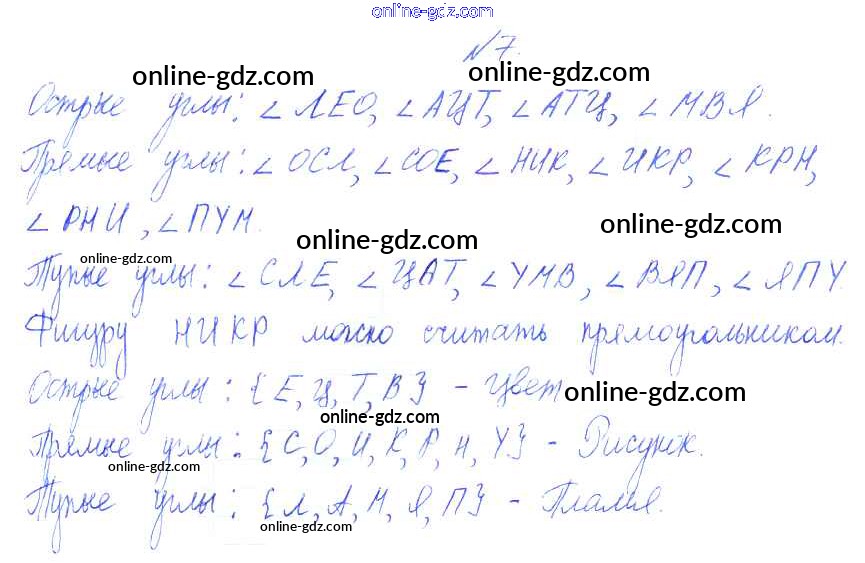 online-gdz.com
№7.
online-gdz.com online-gdz.com
Острые углы: ∠ЛЕО, ∠АЦТ, ∠АТЦ, ∠МВЯ.
Прямые углы: ∠ОСЛ, ∠СОЕ, ∠НИК, ∠ИКР, ∠КРН,
∠РНИ, ∠ПУМ.
online-gdz.com online-gdz.com
online-gdz.com
Тупые углы: ∠СЛЕ, ∠ЦАТ, ∠УМВ, ∠ВЯП, ∠ЯПУ.
Фигуру НИКР можно считать прямоугольником.
Острые углы: {Е, Ц, Т, В} - Цвет
online-gdz.com
online-gdz.com
Прямые углы: {С, О, И, К, Р, Н, У} - Рисунок.
online-gdz.com
Тупые углы: {Л, А, М, Я, П} - Пламя.
online-gdz.com